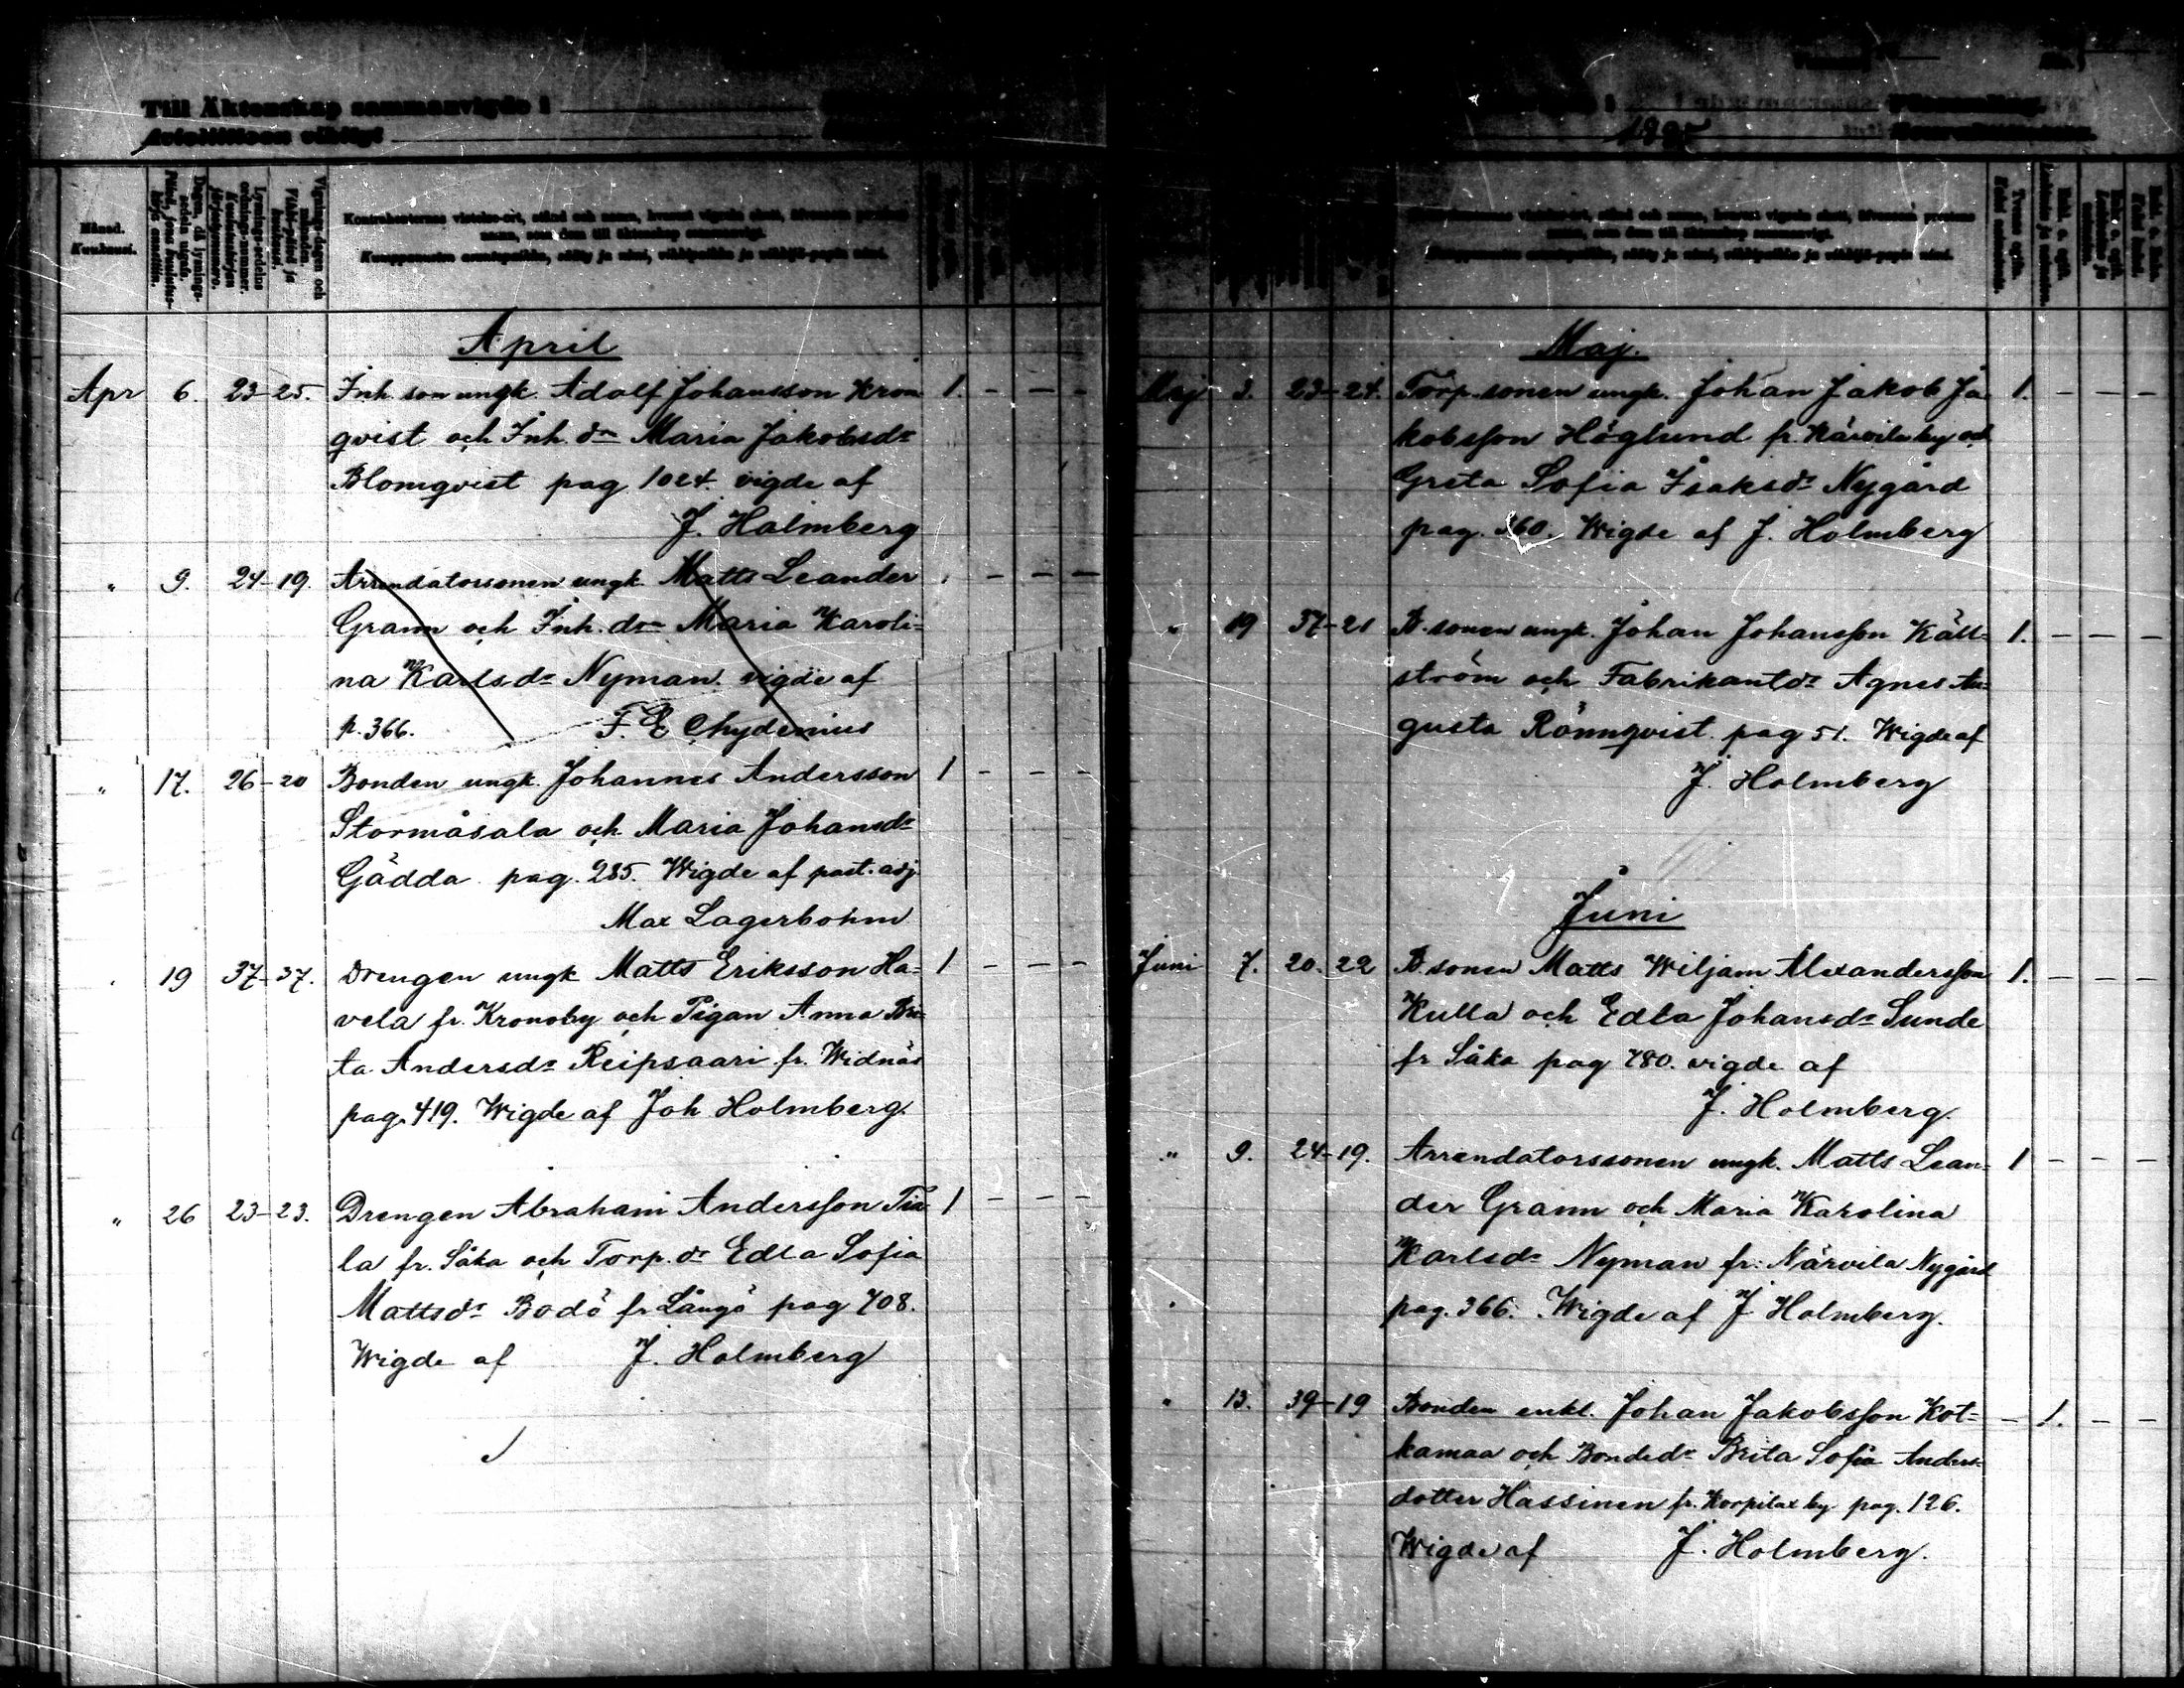 Till Äktenskap sammanvigde i
Avioliittoon vihityt
Månad.
Kuukausi.
Kontrahenternas vistelse-ort, stånd och namn, hvarest vigseln skett, äfvensom prestens
namn, som dem till äktenskap sammanvigt.
April
Apr 6. 23-25. Inh. son ungk. Adolf Johansson Kron 1. - - -
qvist och Inh. dr Maria Jakobsdr
Blomqvist pag 1024. vigde af
J. Holmberg
" 9. 24-19. Arrendatorssonen ungk. Matts Leander - - -
Grann och Inh. dr Maria Karoli-
na Karlsdr Nyman. vigde af
p. 366. F. E Chydenius
" 17. 26-20 Bonden ungk. Johannes Andersson 1 - - -
Stormåsala och Maria Johansdr
Gädda pag. 285. Wigde af past. adj.
Max Lagerbohm
19 37-37. Drengen ungk Matts Eriksson Ha- 1 - - -
vela fr. Kronoby och Pigan Anna Bri-
ta Andersdr Reipsaari fr. Widnäs
pag. 419. Wigde af Joh Holmberg.
" 26 23-23. Drengen Abraham Andersson Tia 1 - - -
la fr. Såka och Torp. dr Edla Sofia
Mattsdr Bodö fr Långö pag 708.
Wigde af J. Holmberg
1895
Kontrahenternas vistelse-ort, stånd och namn, hvarest vigseln skett, äfvensom prestens
namn, som dem till äktenskap sammanvigt.
Maj.
Maj 3. 23-24. Torp. sonen ungk. Johan Jakob Ja- 1. - - -
kobsson Höglund fr. Närvilä by och
Greta Sofia Isaksdr Nygård
pag. 360. Wigde af J. Holmberg
" 19 37-21 B. sonen ungk. Johan Johansson Käll- 1. - - -
ström och Fabrikantdr Agnes Au-
gusta Rönnqvist. pag 51. Wigde af
J. Holmberg
Juni
Juni 7. 20-22 B. sonen Matts Wiljam Alexandersson 1. - - -
Kulla och Edla Johansdr Sunde
fr Såka pag 780. vigde af
J. Holmberg.
" 9. 24-19. Arrendatorssonen ungk. Matts Lean- 1 - - -
der Grann och Maria Karolina
Karlsdr Nyman fr. Närvilä Nygård
pag. 366. Wigde af J Holmberg.
" 13. 39-19 Bonden enkl. Johan Jakobsson Kot- - 1. - -
kamaa och Bondedr Brita Sofia Anders-
dotter Hassinen fr. Korpilax by pag. 126.
Wigde af J. Holmberg.